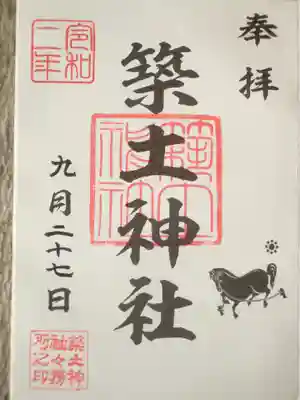 奉拝
築土神社
築土神社
令和
二年
九月二十七日
築土神
社々務
所之印